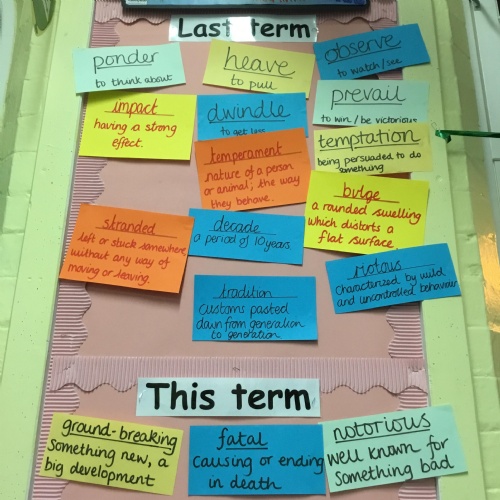 Last term
ponder
to think about
heave
to pull
observe
to watch/see
impact
having a strong
effect.
dwindle
to get less
prevail
to win/be victorious
temperament
nature of a person
or animal; the way
they behave.
temptation
being persuaded to do
something
bulge
a rounded swelling
which distorts a
flat surface.
stranded
left or stuck somewhere
without any way of
moving or leaving.
decade
a period of 10 years
riotous
characterized by wild
and uncontrolled behaviour
tradition
customs passed
down from generation
to generation
This term
ground-breaking
Something new, a
big development
fatal
causing or ending
in death
notorious
well known for
something bad